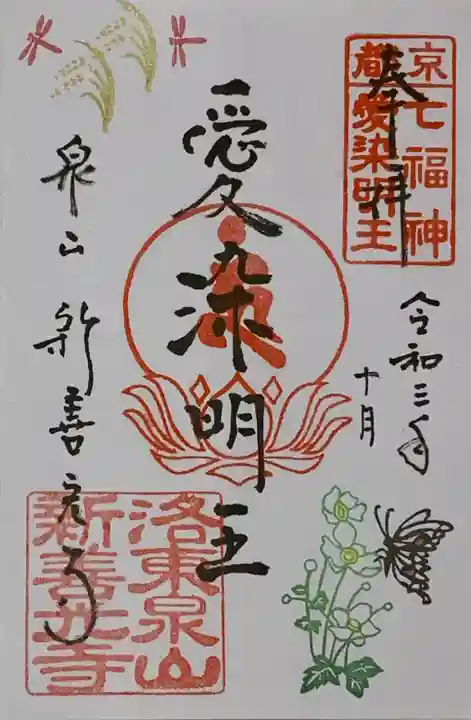 奉拝
京都七福神
愛染明王
令和三年
十月
愛染明王
泉山 新善光寺
洛東泉山
新善光寺